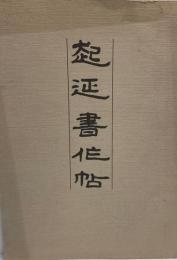 起延書作帖